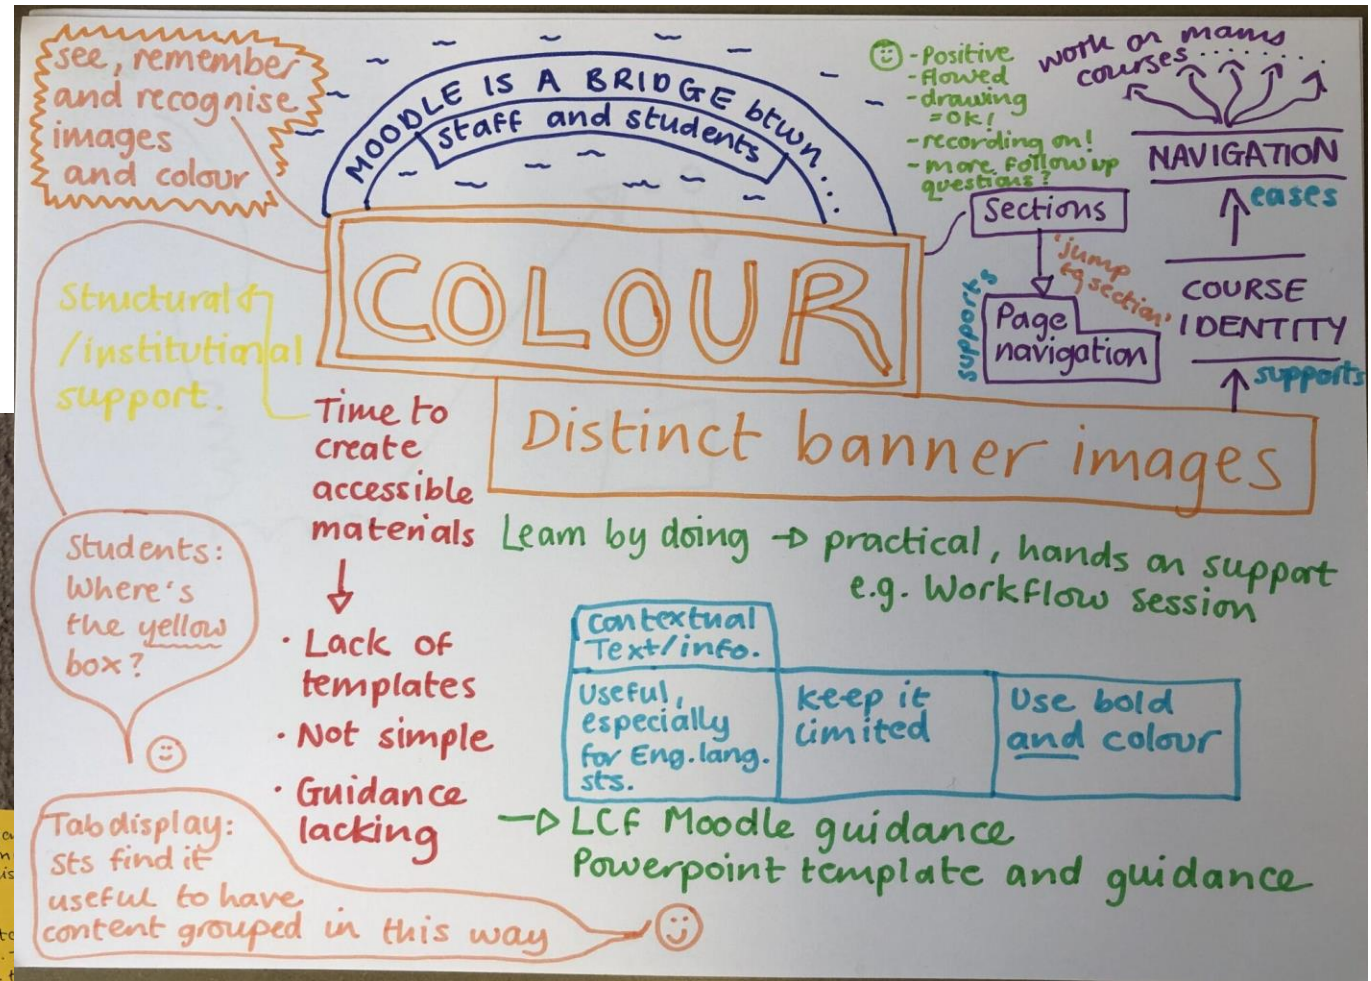 see, remember
and recognise
images
and colour
MOODLE IS A BRIDGE btwn...
staff and students
- Positive
- flowed
- drawing
= OK!
- recording on!
- more follow up
questions?
work on many
courses......
NAVIGATION
eases
COURSE
IDENTITY
supports
Sections
'jump
to section'
supports
Page
navigation
COLOUR
Distinct banner images
Structural
/institutional
support.
Time to
create
accessible
materials
· Lack of
templates
· Not simple
· Guidance
lacking
Students:
Where's
the yellow
box?
Learn by doing → practical, hands on support
e.g. Workflow session
Contextual
Text/info.
Useful,
especially
for Eng.lang.
sts.
keep it
limited
Use bold
and colour
→ LCF Moodle guidance
Powerpoint template and guidance
Tab display:
sts find it
useful to have
content grouped in this way